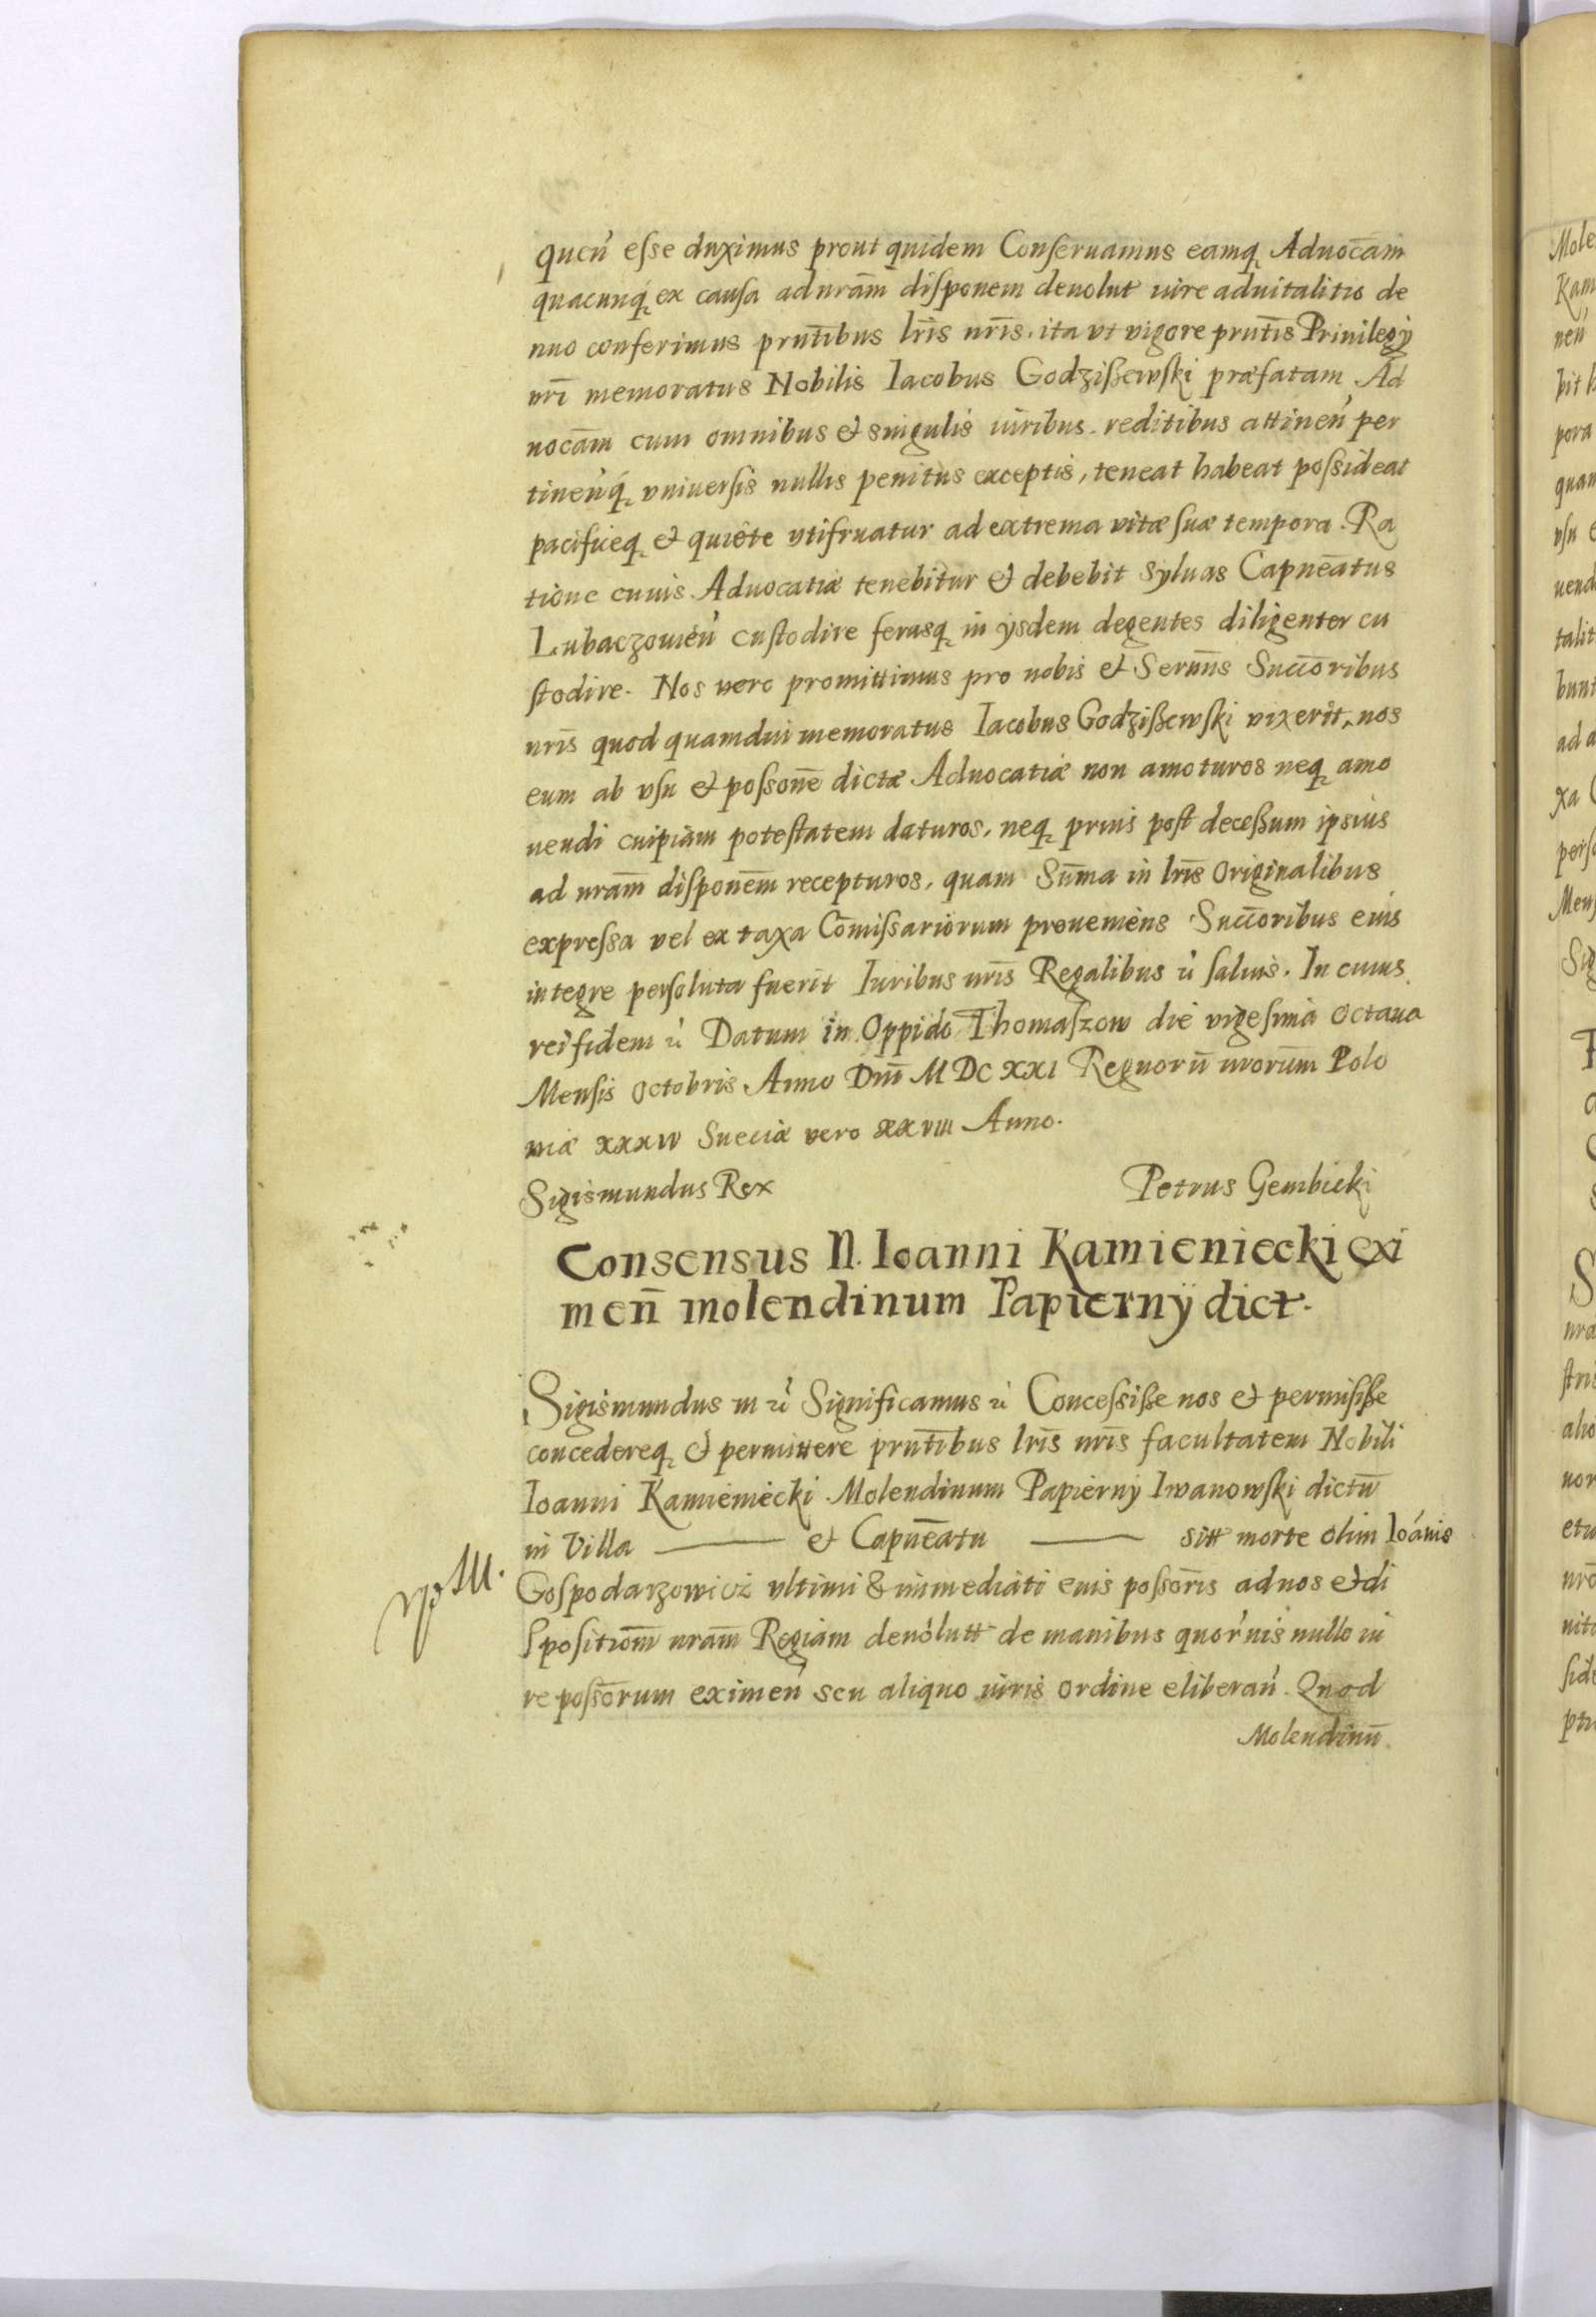 qucń esse duximus prout quidem Conseruamus eamq Aduocām
quacunq ex causa ad nrām disponem deuolut iure aduitalitio de
nuo conferimus prntībus lrīs nrīs. ita vt vigore prntīs Priuilegÿ
nrī memoratus Nobilis Iacobus Godzißewski præfatam Ad
uocām cum omnibus et singulis iuribus reditibus attineń per
tineńq vniuersis nullis penitus exceptis, teneat habeat possideat
pacificeq et quiete vtifruatur ad extrema vitæ suæ tempora. Ra
tione cuius Aduocatiæ tenebitur et debebit syluas Capneātus
Lubaczouień custodire ferasq in ysdem degentes diligenter cu
stodire. Nos vero promittimus pro nobis et Sernīs Succōribus
nrīs quod quamdiu memoratus Iacobus Godzißewski vixerit, nos
eum ab vsu et possonē dictæ Aduocatiæ non amoturos neq amo
uendi cuipiam potestatem daturos, neq prius post deceßum ipsius
ad nrām disponēm recepturos, quam Sūma in lrīs Originalibus
expressa vel ex taxa Cōmissariorum proueniens Succōribus eius
integre persoluta fuerit Iuribus nrīs Regalibus ć saluis. In cuius
rei fidem ć Datum in Oppido Thomaszow die vigesima Octaua
Mensis Octobris Anno Dnī MDCXXI Regnorū nrorūm Polo
niæ XXXIV Sueciæ vero XXVIII Anno.
Sigismundus Rex Petrus Gembicki
Consensus N. Ioanni Kamieniecki exi
meñ molendinum Papiernÿ dict.
Sigismundus III ć Significamus ć Concessiße nos et permisiße
concedereq et permittere prntībus lrīs nrīs facultatem Nobili
Ioanni Kamieniecki Molendinum Papierny Iwanowski dictū
in Villa ——— et Capneātu ——— sitt morte olim Ioánis
Gospodarzowicz vltimi & immediati eius possorīs ad nos et di
spositionm̄ nrām Regiam deuolutt de manibus quoruis nullo iu
re possōrum eximeń seu aliquo iuris ordine eliberań. Quod
Molendinū